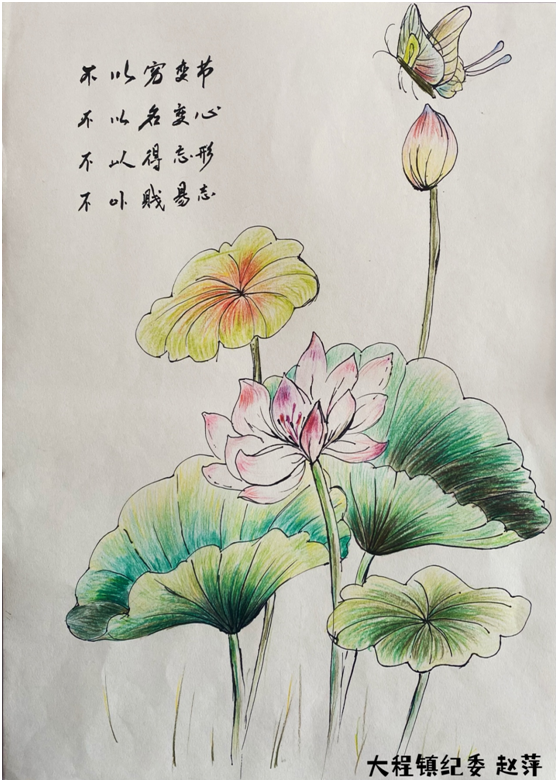 不以穷变节
不以名变心
不以得忘形
不以贱易志
大程镇纪委 赵萍